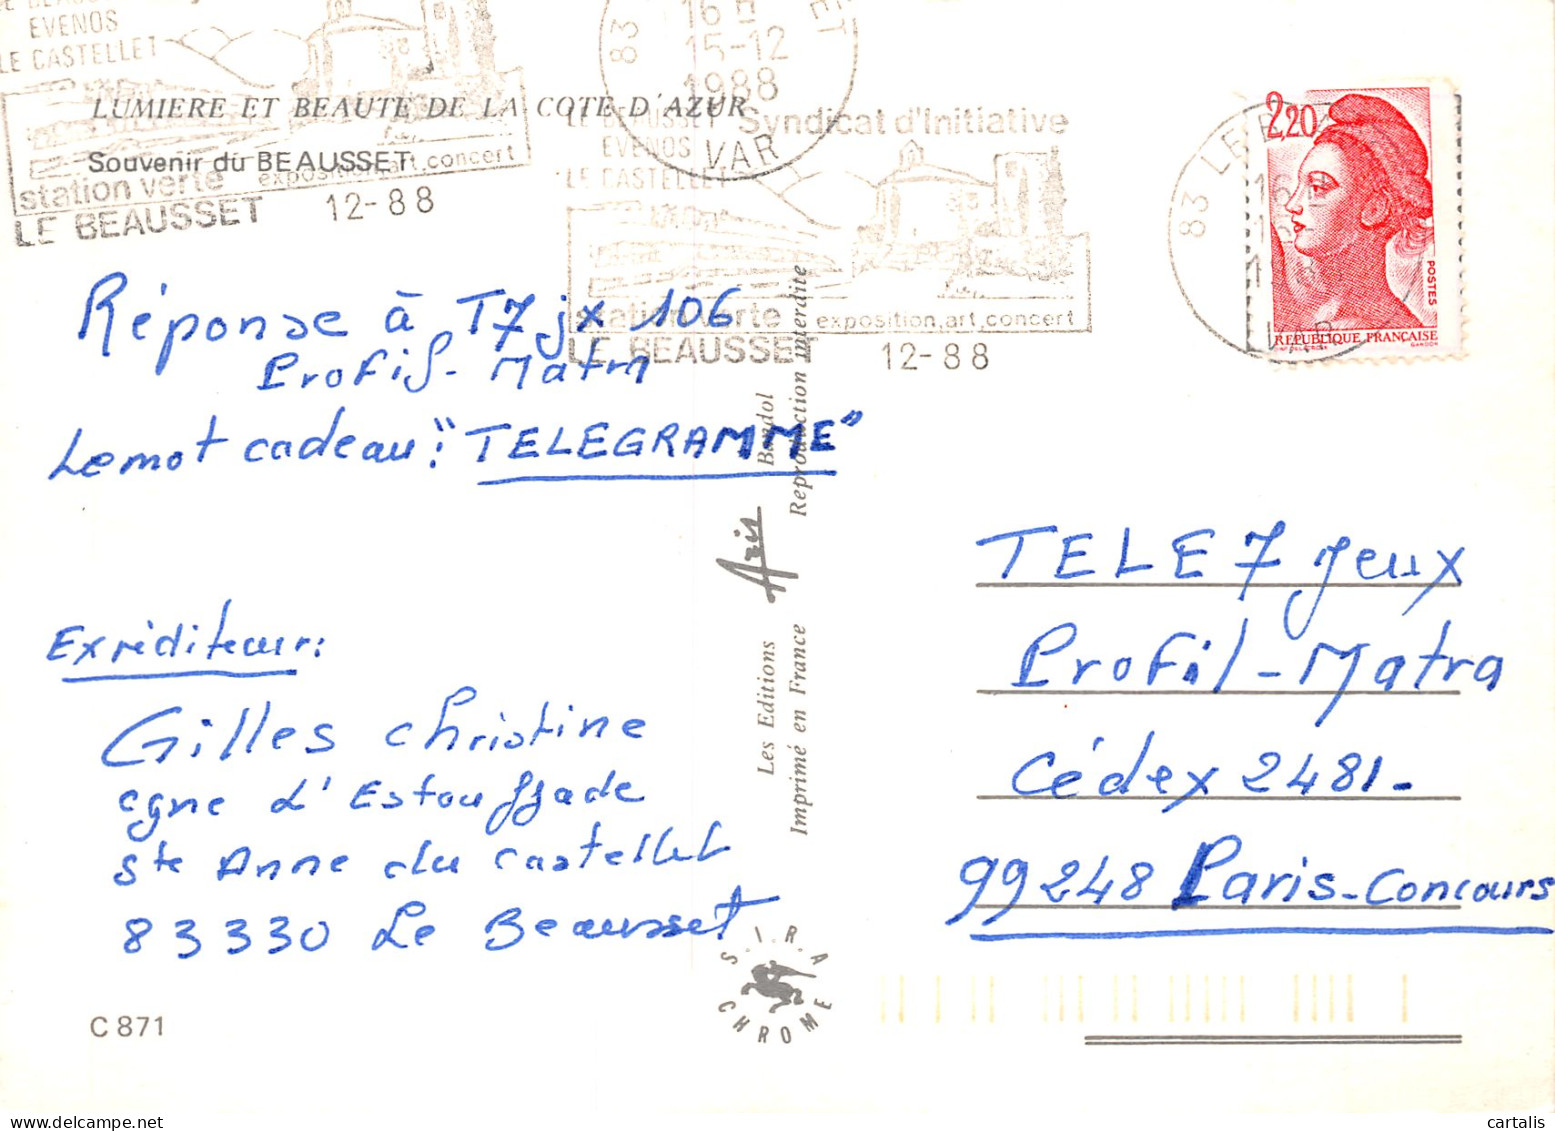 LE BEAUSSET
EVENOS
LE CASTELLET
station verte exposition, art, concert
LE BEAUSSET 12-88
83
16 H
15-12
1988
VAR
LUMIERE ET BEAUTE DE LA COTE D'AZUR
Souvenir du BEAUSSET
LE BEAUSSET Syndicat d'Initiative
EVENOS
LE CASTELLET
station verte exposition, art, concert
LE BEAUSSET 12-88
83 LE B
VAR
2,20
POSTES
REPUBLIQUE FRANÇAISE
GANDON
Réponse à T7jx 106
Profil-Matra
Le mot cadeau: "TELEGRAMME"
Expéditeur:
Gilles Christine
cgne d'Estouffade
Ste Anne du Castellet
83330 Le Beausset
C 871
Les Editions Aris Bandol
Imprimé en France Reproduction interdite
S.I.R.A
CHROME
TELE 7 Jeux
Profil-Matra
Cédex 2481-
99248 Paris-Concours
cartalis